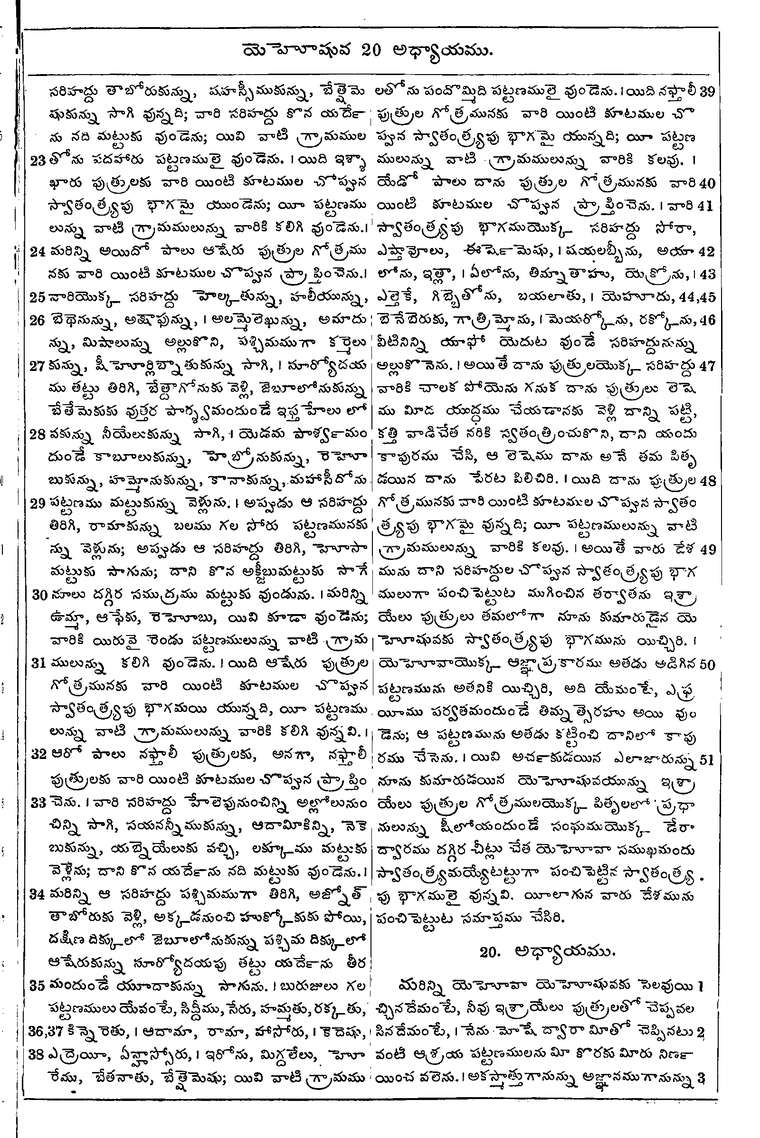 యెహోషువ 20 అధ్యాయము.
సరిహద్దు తాబోరుకున్ను, షహస్సీముకున్ను, బేత్షెమె
షుకున్ను సాగి వున్నది; వారి సరిహద్దు కొన యర్దే
ను నది మట్టుకు వుండెను; యివి వాటి గ్రామముల
23 తోను పదహారు పట్టణములై వుండెను. । యిది ఇశ్శా
ఖారు పుత్రులకు వారి యింటి కూటముల చొప్పున
స్వాతంత్ర్యపు భాగమై యుండెను; యీ పట్టణము
లున్ను వాటి గ్రామములున్ను వారికి కలిగి వుండెను.।
24 మరిన్ని అయిదో పాలు ఆషేరు పుత్రుల గోత్రము
నకు వారి యింటి కూటముల చొప్పున ప్రాప్తించెను.।
25 వారియొక్క సరిహద్దు హెల్కతున్ను, హలీయున్ను,
26 బెథెనున్ను, అఖ్షాపున్ను, । అలమ్మెలెఖున్ను, అమాదు
న్ను, మిషాలున్ను అల్లుకొని, పశ్చిమముగా కర్మెలు
27 కున్ను, షీహోర్లిబ్నాతుకున్ను సాగి, । సూర్యోదయ
ము తట్టు తిరిగి, బేత్దాగోనుకు వెళ్లి, జెబూలోనుకున్ను
బేతేమెకుకు వుత్తర పార్శ్వమందుండే ఇప్తహేలు లో
28 వకున్ను నీయేలుకున్ను సాగి, । యెడమ పార్శ్వమం
దుండే కాబూలుకున్ను, హెబ్రోనుకున్ను, రెహో
బుకున్ను, హమ్మోనుకున్ను, కానాకున్ను, మహాసీదోను
29 పట్టణము మట్టుకున్ను వెళ్లును. । అప్పుడు ఆ సరిహద్దు
తిరిగి, రామాకున్ను బలము గల సోరు పట్టణమునకు
న్ను వెళ్లును; అప్పుడు ఆ సరిహద్దు తిరిగి, హోసా
మట్టుకు సాగును; దాని కొన అక్జీబుమట్టుకు సాగే
30 నూలు దగ్గిర సముద్రము మట్టుకు వుండును. । మరిన్ని
ఉమ్మా, ఆఫేకు, రెహోబు, యివి కూడా వుండెను;
వారికి యిరువై రెండు పట్టణములున్ను వాటి గ్రామ
31 ములున్ను కలిగి వుండెను. । యిది ఆషేరు పుత్రుల
గోత్రమునకు వారి యింటి కూటముల చొప్పున
స్వాతంత్ర్యపు భాగమయి యున్నది, యీ పట్టణము
లున్ను వాటి గ్రామములున్ను వారికి కలిగి వున్నవి.।
32 ఆరో పాలు నఫ్తాలీ పుత్రులకు, అనగా, నఫ్తాలీ
పుత్రులకు వారి యింటి కూటముల చొప్పున ప్రాప్తిం
33 చెను. । వారి సరిహద్దు హేలెపునుంచిన్ని అల్లోలునుం
చిన్ని సాగి, సయనన్నీముకున్ను, ఆదామీకిన్ని, నెకె
బుకున్ను, యబ్నెయేలుకు వచ్చి, లక్కూము మట్టుకు
వెళ్లేను; దాని కొన యర్దేను నది మట్టుకు వుండెను.।
34 మరిన్ని ఆ సరిహద్దు పశ్చిమముగా తిరిగి, అజ్నోత్
తాబోరుకు వెళ్లి, అక్కడనుంచి హుక్కోకుకు పోయి,
దక్షిణ దిక్కులో జెబూలోనుకున్ను పశ్చిమ దిక్కులో
ఆషేరుకున్ను సూర్యోదయపు తట్టు యర్దేను తీర
35 మందుండే యూదాకున్ను సాగును. । బురుజులు గల
పట్టణములు యేవంటే, సిద్దీము, సేరు, హమ్మతు, రక్కతు,
36,37 కిన్నెరెతు, । ఆదామా, రామా, హాసోరు, । కెదెషు,
38 ఎద్రెయీ, ఏన్హాస్సోరు, । ఇరోను, మిగ్దలేలు, హొ
రేము, బేతనాతు, బేత్షెమెషు; యివి వాటి గ్రామము
లతోను పందొమ్మిది పట్టణములై వుండెను. । యిది నఫ్తాలీ 39
పుత్రుల గోత్రమునకు వారి యింటి కూటముల చొ
ప్పున స్వాతంత్ర్యపు భాగమై యున్నది; యీ పట్టణ
ములున్ను వాటి గ్రామములున్ను వారికి కలవు. ।
యేడో పాలు దాను పుత్రుల గోత్రమునకు వారి 40
యింటి కూటముల చొప్పున ప్రాప్తించెను. । వారి 41
స్వాతంత్ర్యపు భాగముయొక్క సరిహద్దు సోరా,
ఎష్తావోలు, ఈర్షెమెషు, । షయలబ్బీను, అయా 42
లోను, ఇత్లా, । ఏలోను, తిమ్నాతాహు, యెక్రోను, । 43
ఎల్తెకే, గిబ్బెతోను, బయలాతు, । యెహూదు, 44,45
బెనేబెరుకు, గాత్రిమ్మోను, । మెయర్కోను, రక్కోను, 46
వీటినిన్ని యాఫో యెదుట వుండే సరిహద్దునున్ను
అల్లుకొనెను. । అయితే దాను పుత్రులయొక్క సరిహద్దు 47
వారికి చాలక పోయెను గనుక దాను పుత్రులు లెషె
ము మీద యుద్ధము చేయడానకు వెళ్లి దాన్ని పట్టి,
కత్తి వాడిచేత నరికి స్వతంత్రించుకొని, దాని యందు
కాపురము చేసి, ఆ లెషెము దాను అనే తమ పితృ
డయిన దాను పేరట పిలిచిరి. । యిది దాను పుత్రుల 48
గోత్రమునకు వారి యింటి కూటముల చొప్పున స్వాతం
త్ర్యపు భాగమై వున్నది; యీ పట్టణములున్ను వాటి
గ్రామములున్ను వారికి కలవు. । అయితే వారు దేశ 49
మును దాని సరిహద్దుల చొప్పున స్వాతంత్ర్యపు భాగ
ములుగా పంచిపెట్టుట ముగించిన తర్వాతను ఇశ్రా
యేలు పుత్రులు తమలోగా నూను కుమారుడైన యె
హోషువకు స్వాతంత్ర్యపు భాగమును యిచ్చిరి. ।
యెహోవాయొక్క ఆజ్ఞాప్రకారము అతడు అడిగిన 50
పట్టణమును అతనికి యిచ్చిరి, అది యేమంటే, ఎఫ్ర
యీము పర్వతమందుండే తిమ్నత్సెరహు అయి వుం
డెను; ఆ పట్టణమును అతడు కట్టించి దానిలో కాపు
రము చేసెను. । యివి అర్చకుడయిన ఎలాజారున్ను 51
నూను కుమారుడయిన యెహోషువయున్ను ఇశ్రా
యేలు పుత్రుల గోత్రములయొక్క పితృలలో ప్రధా
నులున్ను షీలోయందుండే సంఘముయొక్క డేరా
ద్వారము దగ్గిర చీట్లు చేత యెహోవా సముఖమందు
స్వాతంత్ర్యమయ్యేటట్టుగా పంచిపెట్టిన స్వాతంత్ర్య
పు భాగములై వున్నవి. యీలాగున వారు దేశమును
పంచిపెట్టుట సమాప్తము చేసిరి.
20. అధ్యాయము.
మరిన్ని యెహోవా యెహోషువకు సెలవుయి 1
చ్చినదేమంటే, నీవు ఇశ్రాయేలు పుత్రులతో చెప్పవల
సినదేమంటే, । నేను మోషే ద్వారా మీతో చెప్పినటు 2
వంటి ఆశ్రయ పట్టణములను మీ కొరకు మీరు నిర్ణ
యించ వలెను. । అకస్మాత్తుగానున్ను అజ్ఞానముగానున్ను 3